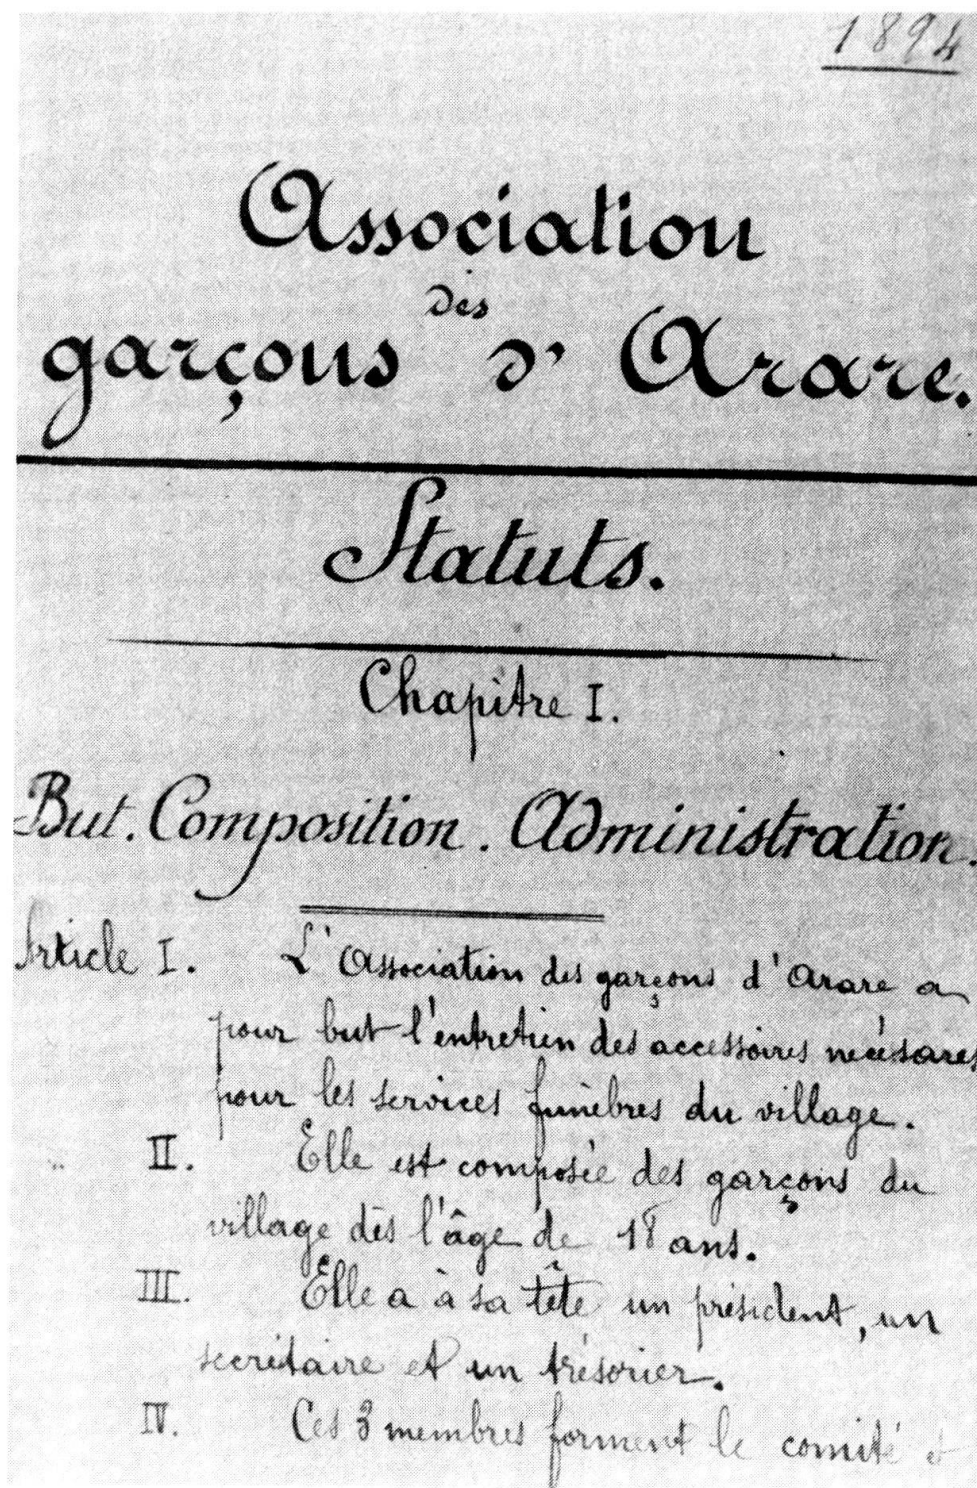 1894
Association
des
garçons d'Arare.
Statuts.
Chapitre I.
But. Composition. Administration.
Article I. L'Association des garçons d'Arare a
pour but l'entretien des accessoires nécessares
pour les services funèbres du village.
II. Elle est composée des garçons du
village dès l'âge de 18 ans.
III. Elle a à sa tête un président, un
secrétaire et un trésorier.
IV. Ces 3 membres forment le comité et